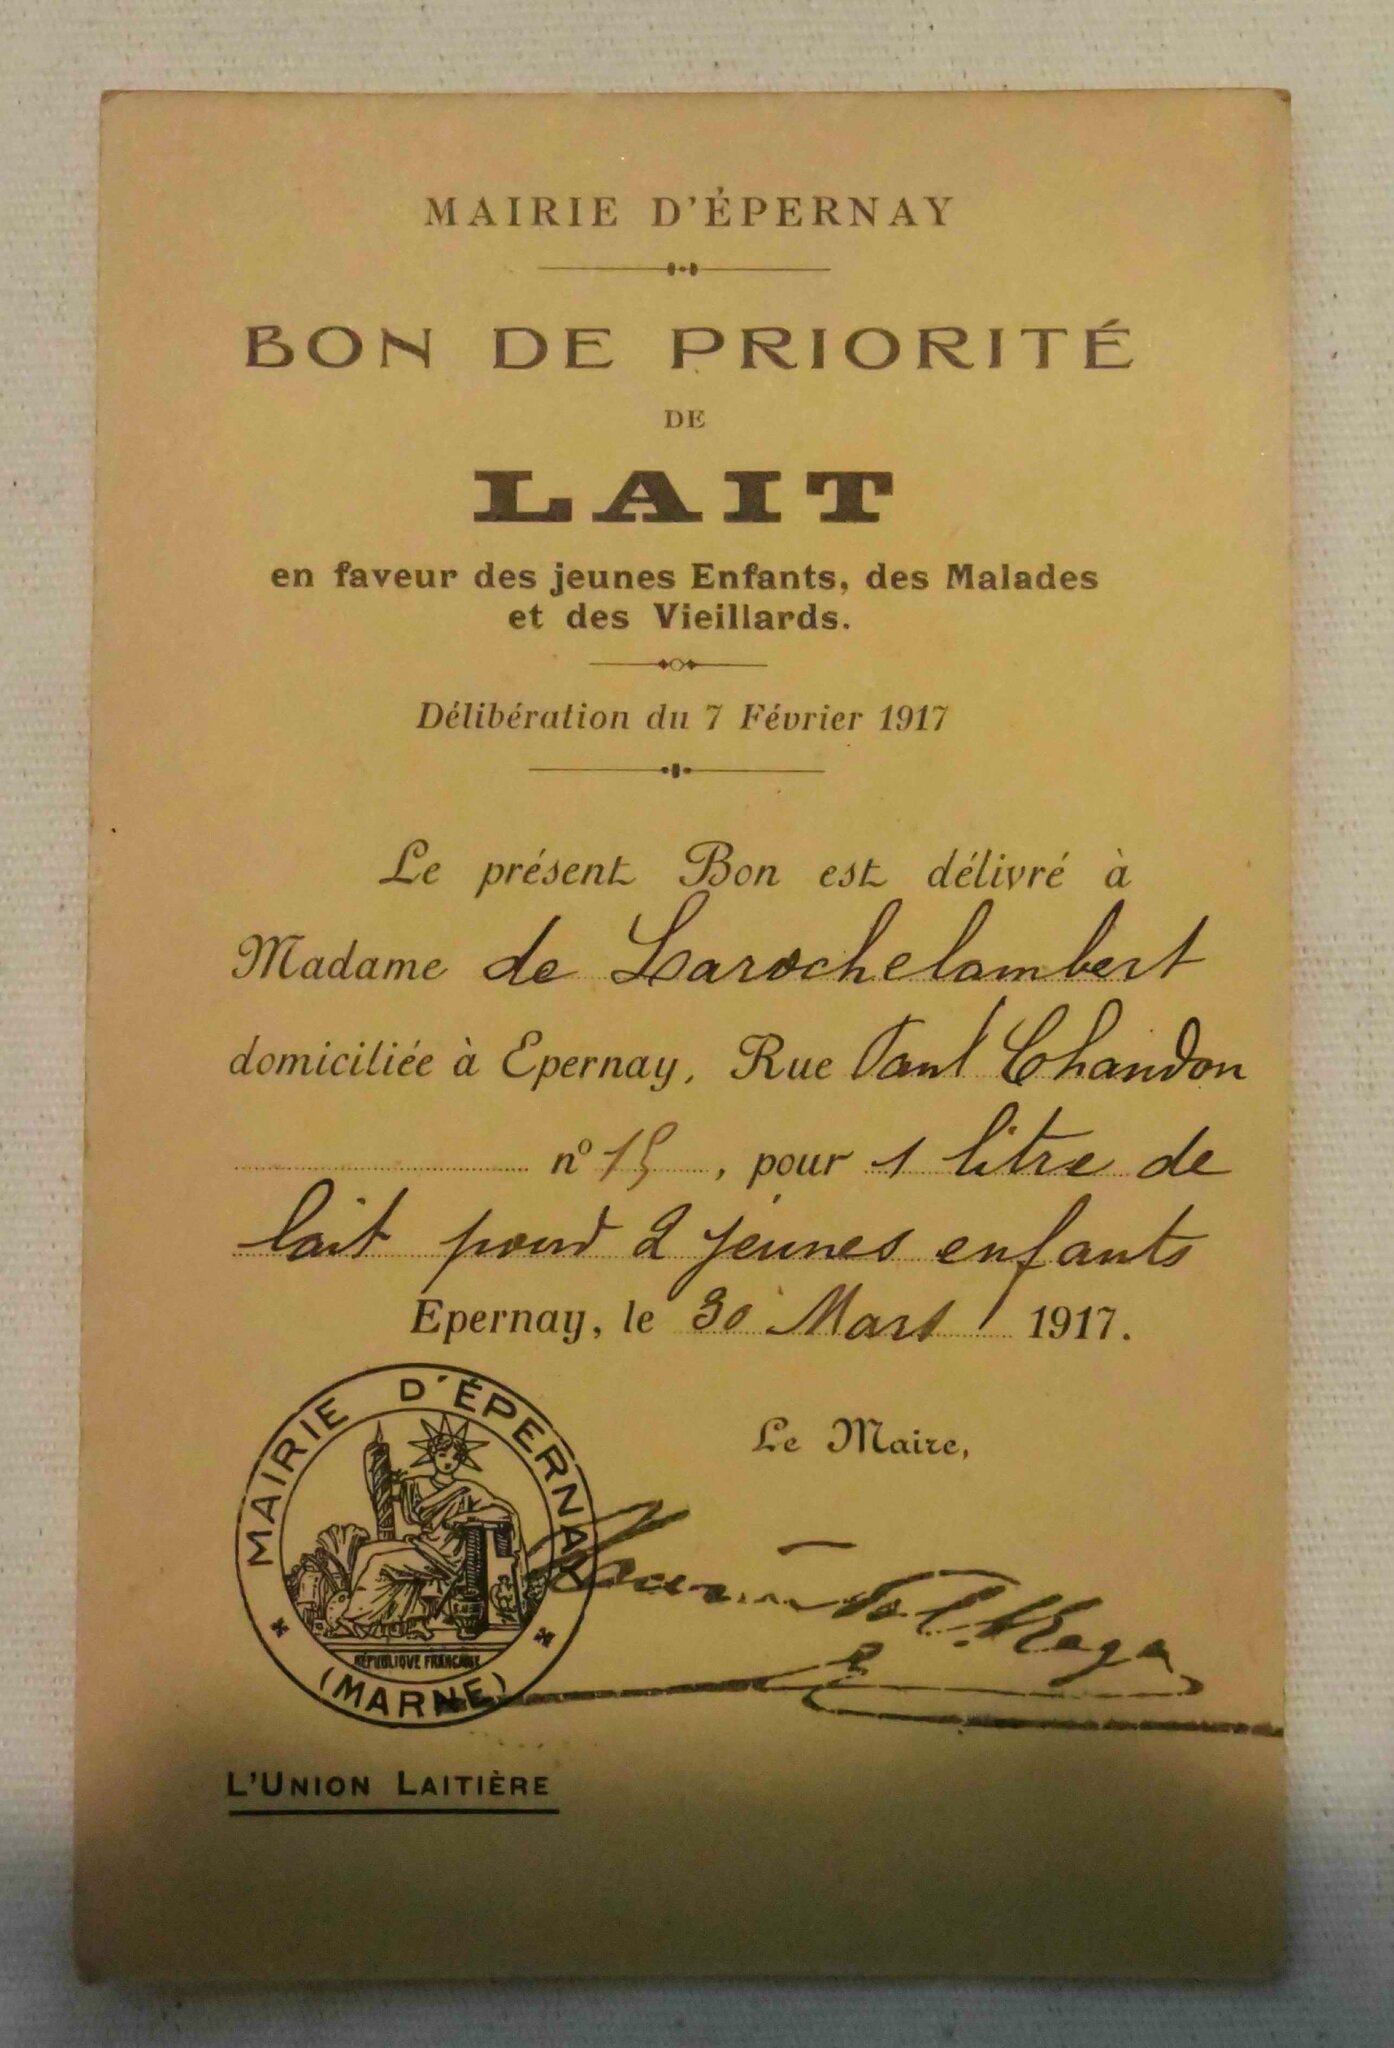 MAIRIE D'ÉPERNAY
BON DE PRIORITÉ
DE
LAIT
en faveur des jeunes Enfants, des Malades
et des Vieillards.
Délibération du 7 Février 1917
Le présent Bon est délivré à
Madame de Larochelambert
domiciliée à Epernay, Rue Paul Chandon
nº 15, pour 1 litre de
lait pour 2 jeunes enfants
Epernay, le 30 Mars 1917.
Le Maire,
MAIRIE D'ÉPERNAY
RÉPUBLIQUE FRANÇAISE
(MARNE)
L'UNION LAITIÈRE